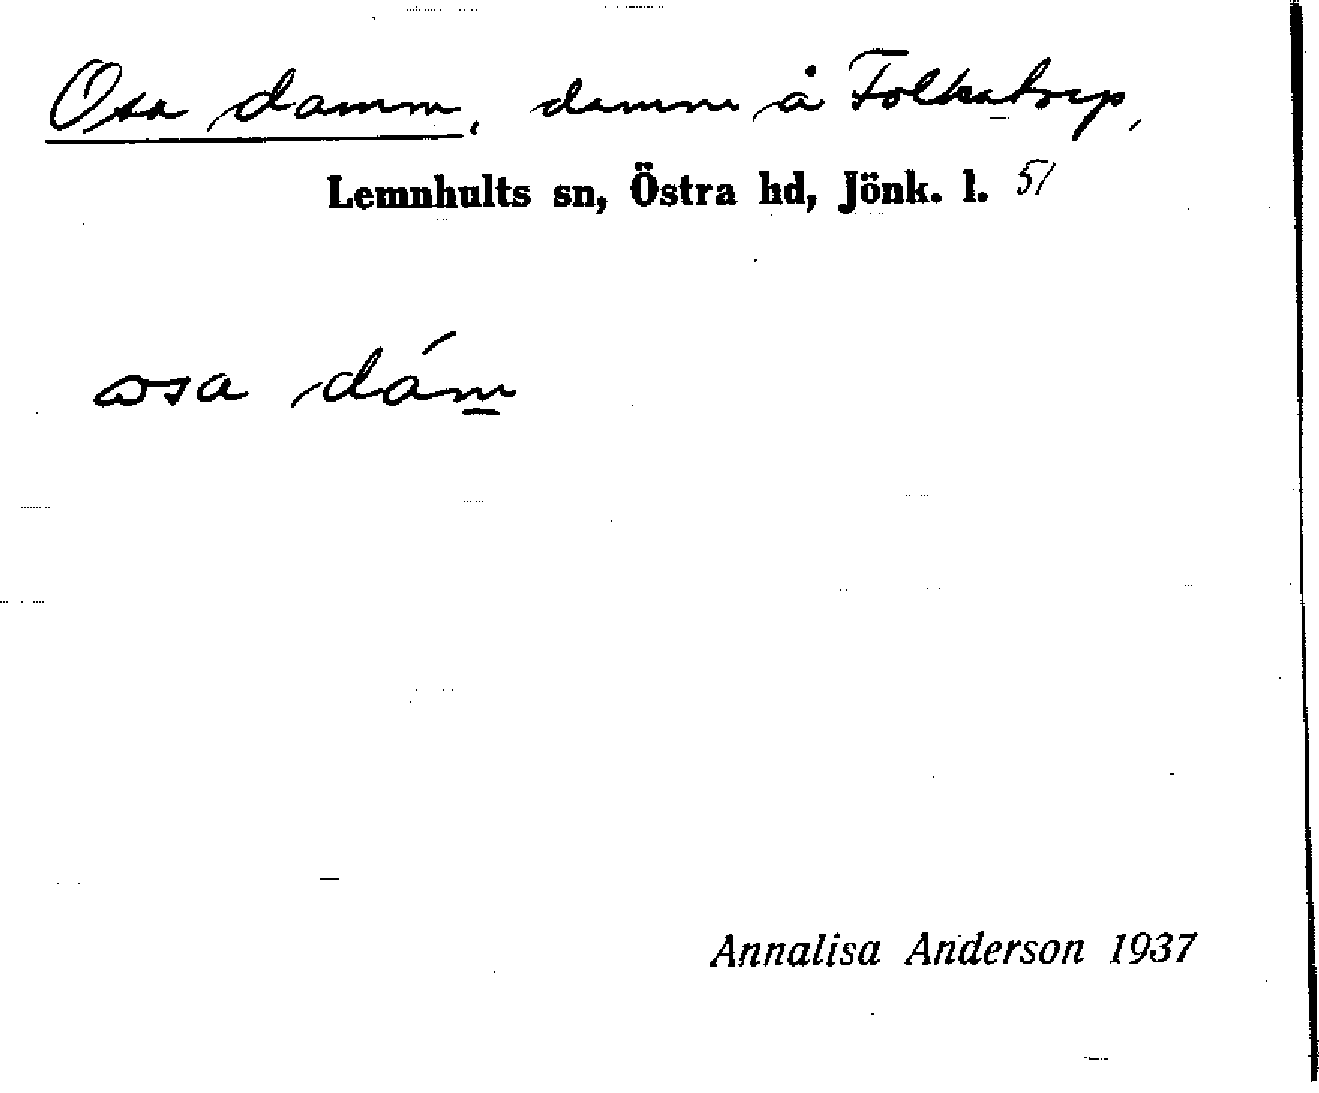 Osa damm, damm å Folkatorp,
Lemnhults sn, Östra hd, Jönk. l. 51
osa dám
Annalisa Anderson 1937